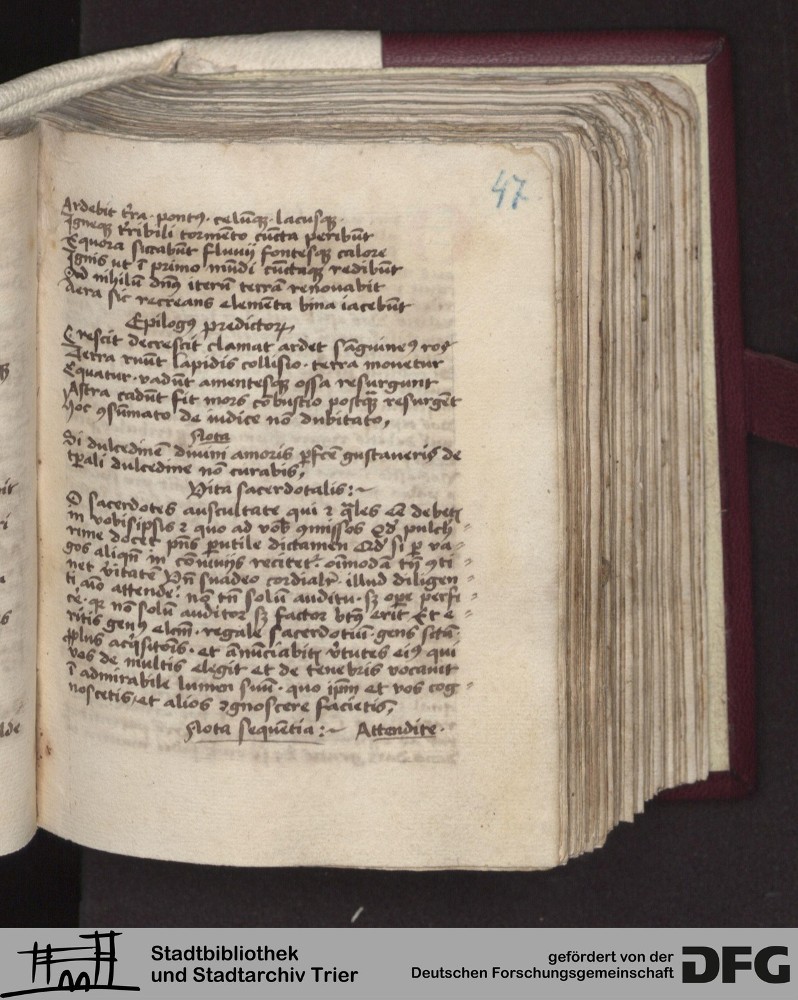 47
Ardebit t̄ra · pontꝰ · celūqꝫ · lacusqꝫ ·
Igneqꝫ t̄ribili tormēto cūcta peribūt
Equora siccabūt fluvij fontesqꝫ calore
Ignis ut ī primo mūdi cūctaqꝫ redibūt
Ad nihilū dn̄s iterū terrā renovabit
Aera sic recreans elemēta bina iacebūt
Epilogꝰ predictoꝝ
Crescit decrescit clamat ardet sāguineꝰ ros
Terra ruūt lapidis collisio · terra monetur
Equatur · vadūt amentesqꝫ ossa resurgunt
Astra cadūt fit mors cōbustio postqꝫ resurgēt
Hoc ꝯsūmato de iudice nō dubitato,
Nota
Si dulcedinē divini amoris ꝑfcē gustaveris de
tꝑali dulcedine nō curabis,
Vita sacerdotalis:~
O sacerdotes auscultate qui ⁊ q̄les debetꝭ
in vobisipsis ⁊ quo ad vob̄ ꝯmissos pulch
rime docet pn̄s ꝑutile dictamen si ꝑ va
gos aliqn̄ in cōvivijs recitet̄ · oīmodā tn̄ ꝯti
net v̄itatē suadeo cordialr̄ · illud diligen
ti aīo attende · nō tn̄ solū auditu · sꝫ oꝑe ꝑfi
ce · nō solū auditor sꝫ factor btꝰ erit Et e
ritis genꝰ elcm̄ · regale sacerdotiū · gens sctā ·
ꝑplus acq̄sitōis · et ānūciabitꝭ v̄tutes eiꝰ qui
vos de multis elegit et de tenebris vocavit
ī admirabile lumen suū · quo ip̄m et vos cog
noscetis, et alios ꝯgnoscere facietis,
Nota sequētia:~ Attendite ·
Stadtbibliothek
und Stadtarchiv Trier
gefördert von der
Deutschen Forschungsgemeinschaft
DFG